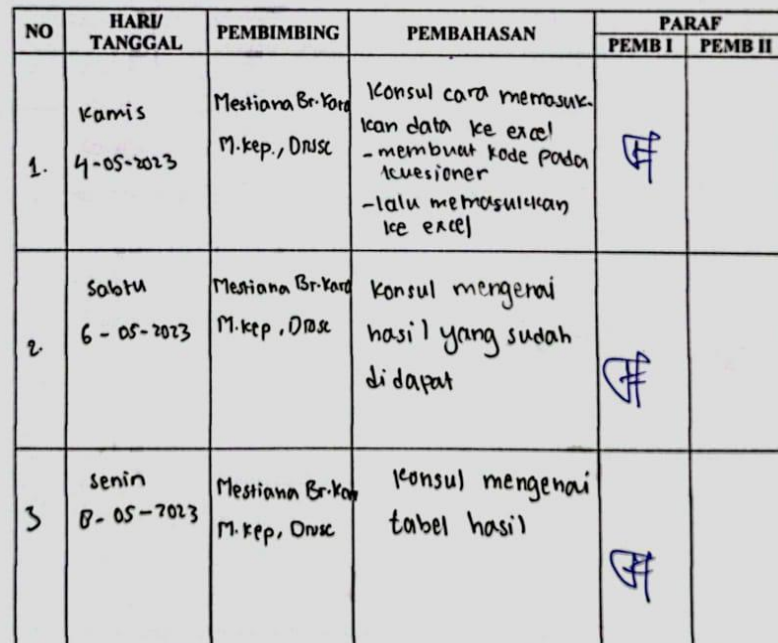 NO HARI/ TANGGAL PEMBIMBING PEMBAHASAN PARAF
PEMB I PEMB II
1.
Kamis
4-05-2023
Mestiana Br. Karo
M.kep., DNSc
Konsul cara memasuk-
kan data ke excel
- membuat kode pada
kuesioner
- lalu memasukkan
ke excel
2.
Sabtu
6-05-2023
Mestiana Br. Karo
M.kep, DNSc
Konsul mengenai
hasil yang sudah
didapat
3
Senin
8-05-2023
Mestiana Br. Karo
M.kep, DNSc
Konsul mengenai
tabel hasil